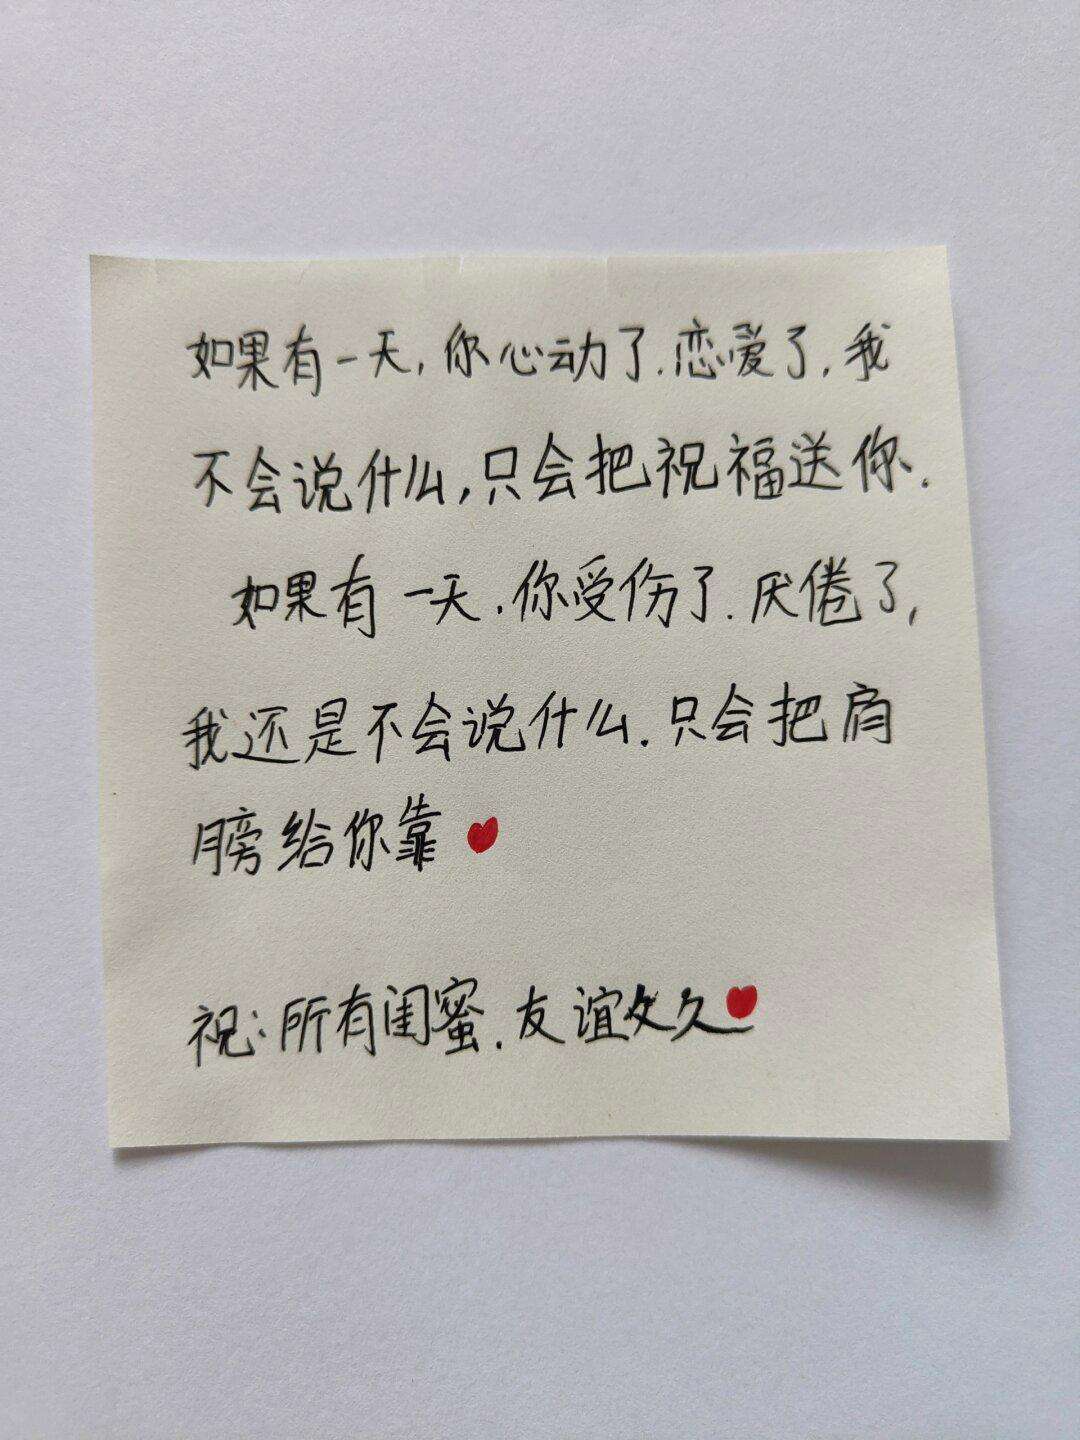 如果有一天,你心动了.恋爱了,我
不会说什么,只会把祝福送你.
如果有一天.你受伤了.厌倦了,
我还是不会说什么.只会把肩
膀给你靠
祝:所有闺蜜.友谊久久